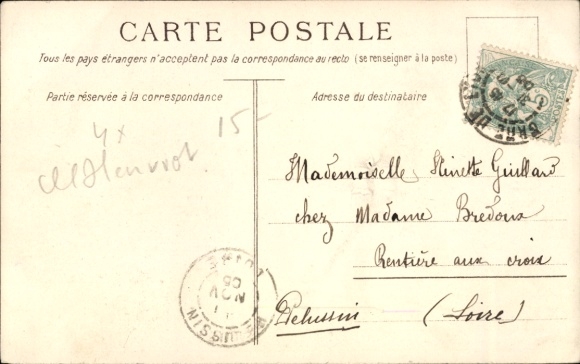 CARTE POSTALE
Tous les pays étrangers n'acceptent pas la correspondance au recto (se renseigner à la poste)
Partie réservée à la correspondance
Adresse du destinataire
4x
15-
Mademoiselle Ninette Guillard
chez Madame Bredoux
Rentière aux croix
Pelussin (Loire)
PELUSSIN
LOIRE
NOV
05
GARE DE